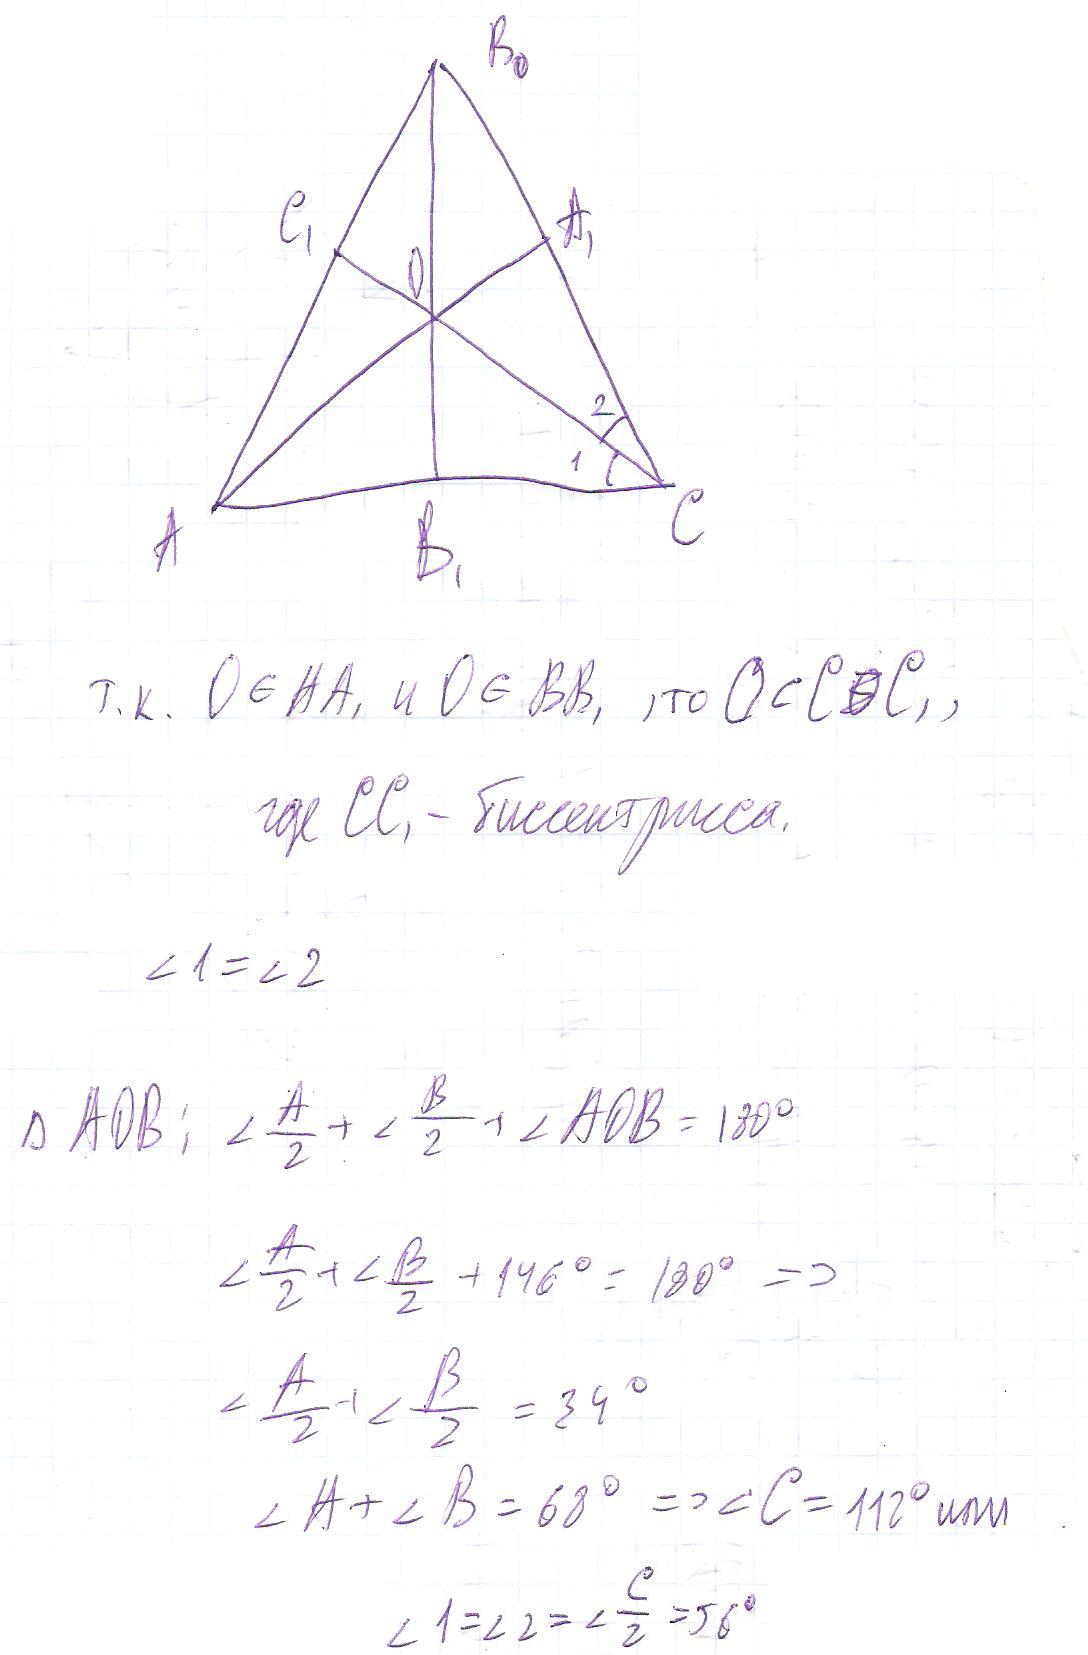 B₀
C₁
A₁
O
2
1
A
B₁
C
т.к. O ∈ AA₁ и O ∈ BB₁, то O ⊂ CC₁,
где CC₁ - биссектрисса.
∠1 = ∠2
△ AOB; ∠A/2 + ∠B/2 + ∠AOB = 180°
∠A/2 + ∠B/2 + 146° = 180° =>
∠A/2 + ∠B/2 = 34°
∠A + ∠B = 68° => ∠C = 112° или
∠1 = ∠2 = ∠C/2 = 56°